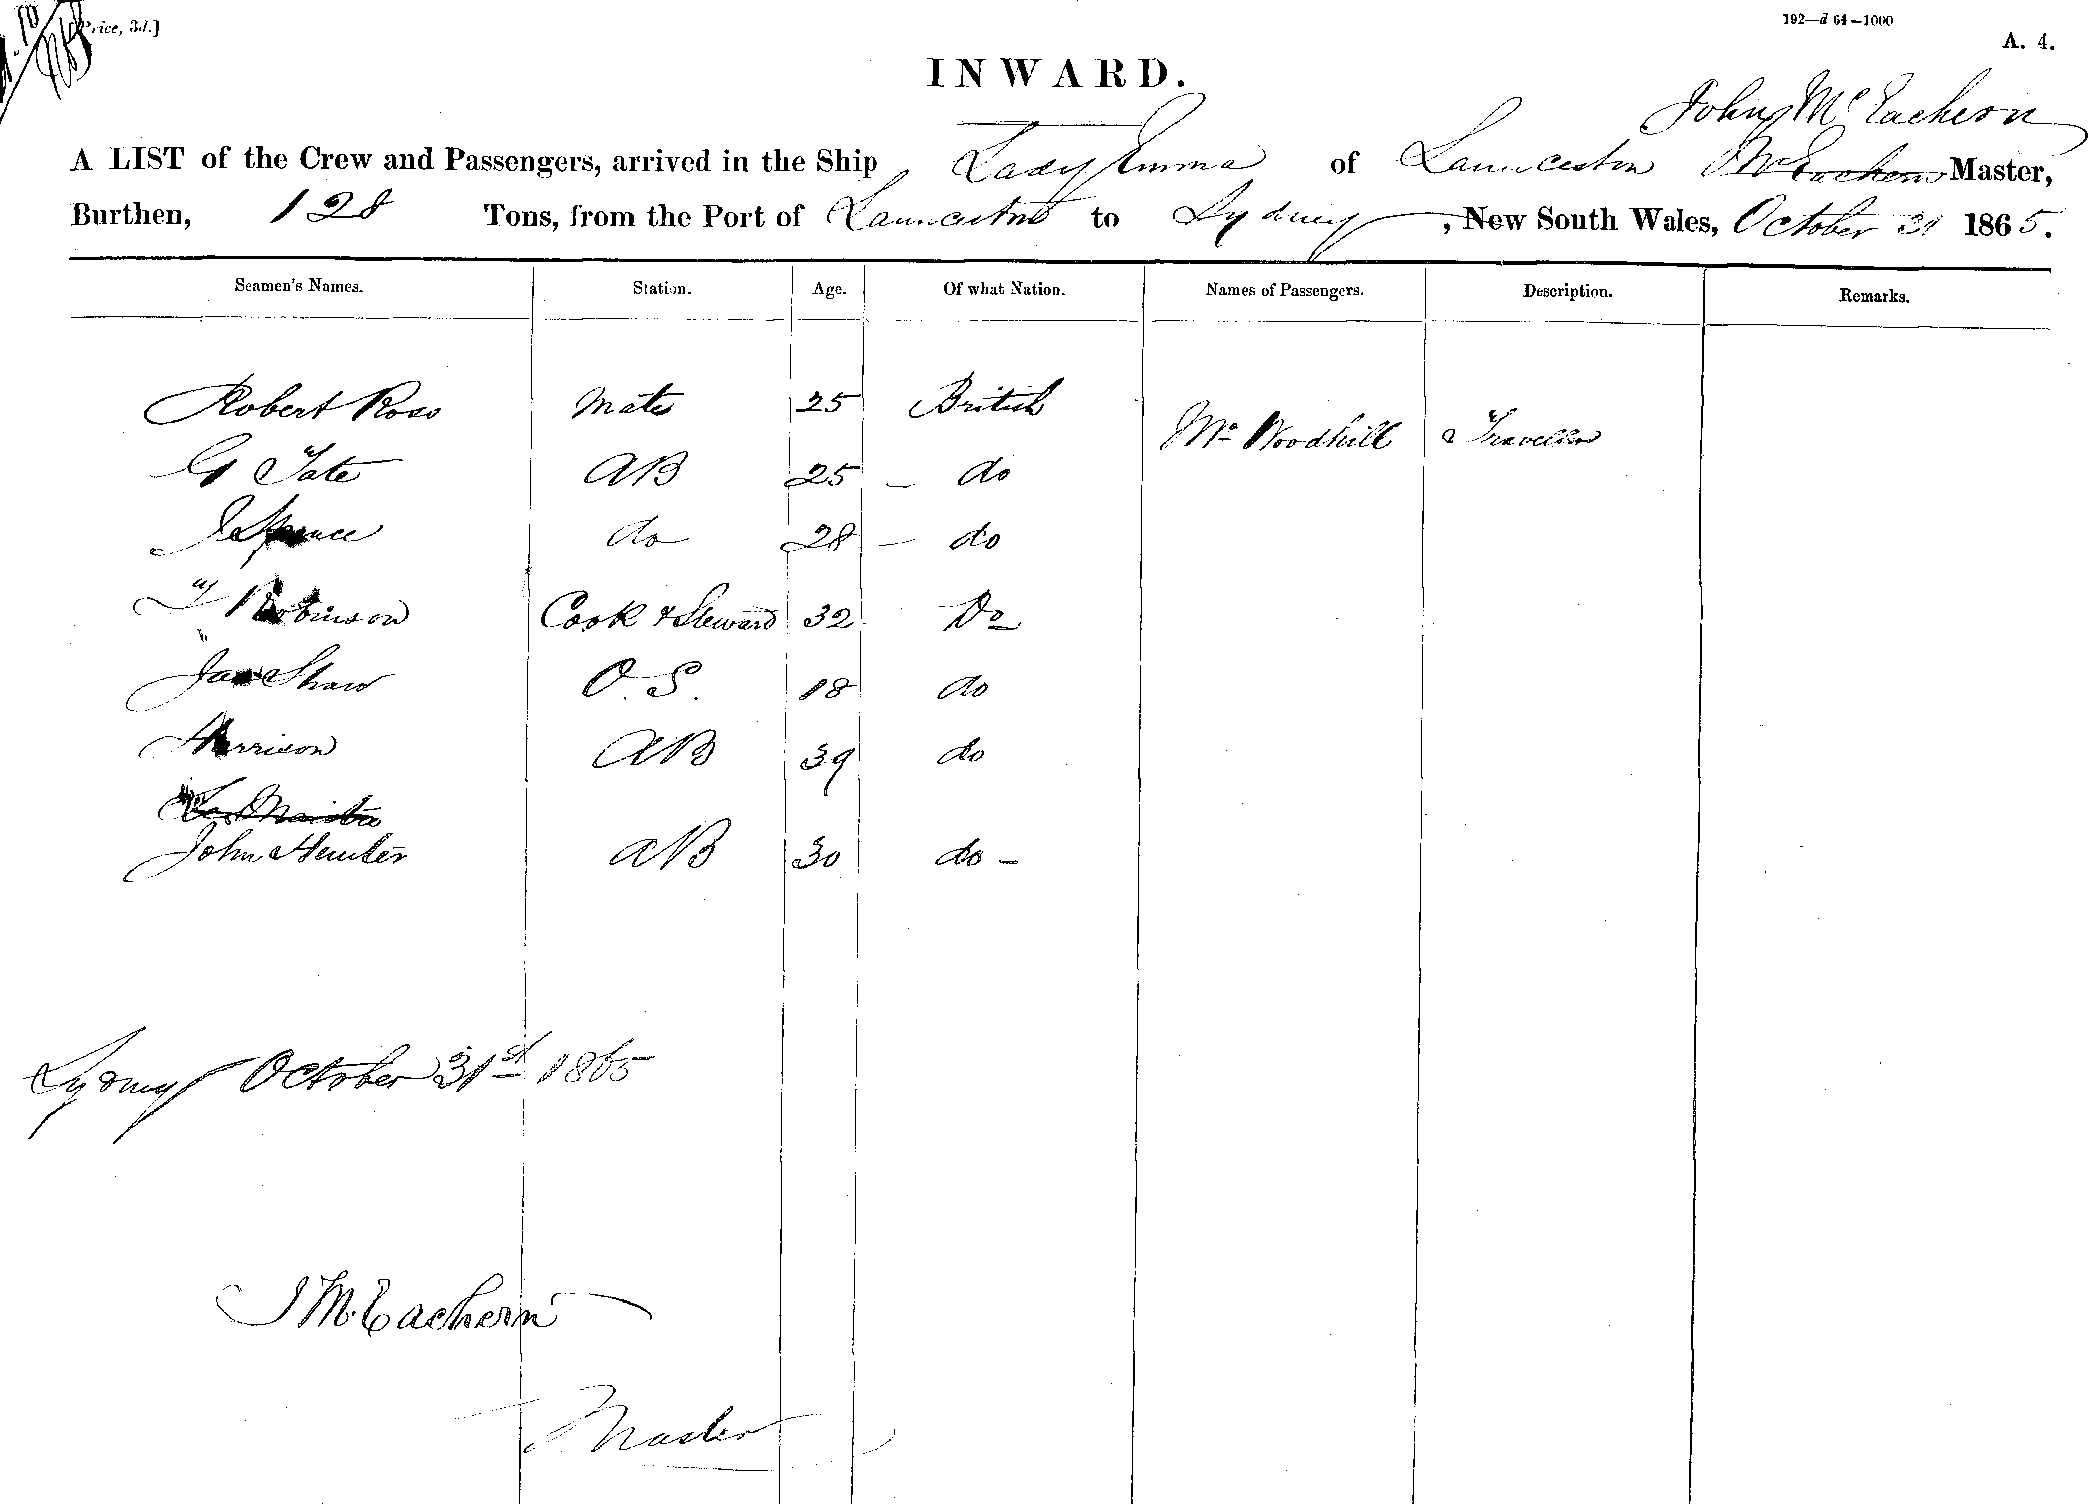 Price, 3d.]
192—d 64—1000
A. 4.
INWARD.
John McEachern
A LIST of the Crew and Passengers, arrived in the Ship Lady Emma of Launceston J McEachern Master,
Burthen, 128 Tons, from the Port of Launceston to Sydney, New South Wales, October 31 1865.
Seamen's Names. Station. Age. Of what Nation. Names of Passengers. Description. Remarks.
Robert Ross Mate 25 British
Mr Woodhill Traveller
G Tate AB 25 — do
J Spence do 28 — do
Robinson Cook & Steward 32 Do
Jas Shaw O.S. 18 do
Harrison AB 39 do
John Hunter AB 30 do —
Sydney October 31st 1865
J McEachern
Master